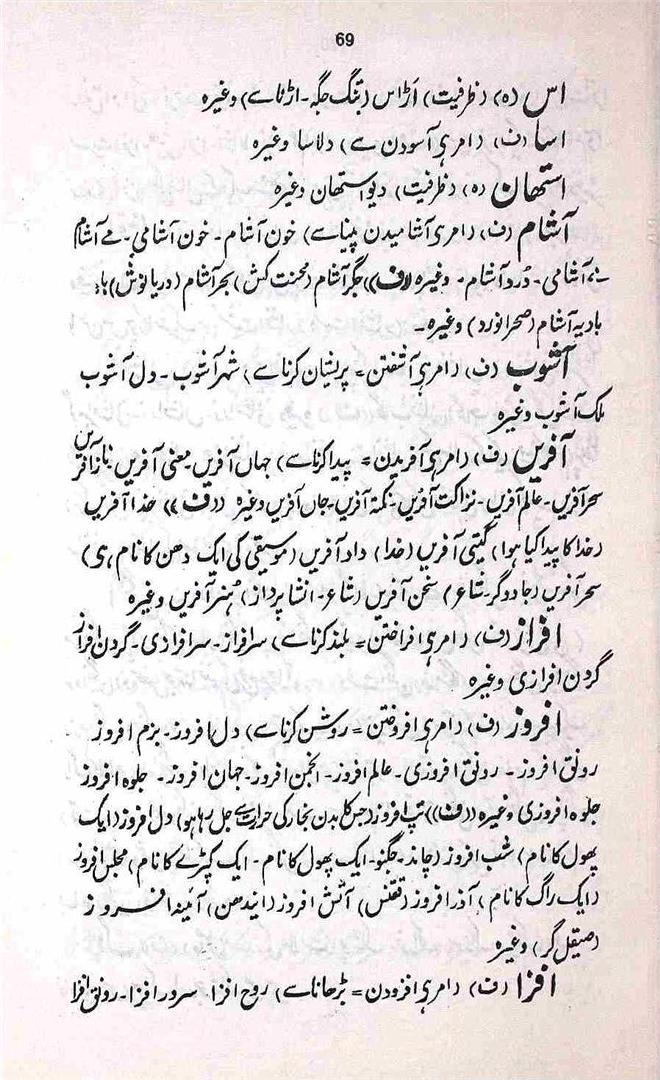 69
اس (ہ) (ظرفیت) اَڑاس (تنگ جگہ۔ اڑنا سے) وغیرہ
اسا (ف) (امر ہی آسودن سے) دلاسا وغیرہ
استھان (ہ) (ظرفیت) دیواستھان وغیرہ
آشام (ف) (امر ہی آشامیدن پینا سے) خون آشام۔ خون آشامی۔ مے آشام
مے آشامی۔ دُرد آشام۔ وغیرہ ((ف)) جگر آشام (محنت کش) بحر آشام (دریا نوش)
بادیہ آشام (صحرا نورد) وغیرہ۔
آشوب (ف) (امر ہی آشفتن = پریشان کرنا سے) شہر آشوب۔ دل آشوب
ملک آشوب وغیرہ
آفریں (ف) (امر ہی آفریدن = پیدا کرنا سے) جہاں آفریں۔ معنی آفریں۔ ناز آفریں
سحر آفریں۔ عالم آفریں۔ نزاکت آفریں۔ نکتہ آفریں۔ جاں آفریں وغیرہ ((ف)) خدا آفریں
(خدا کا پیدا کیا ہوا) گیتی آفریں (خدا) داد آفریں (موسیقی کی ایک دھن کا نام ہی)
سحر آفریں (جادوگر۔ شاعر) سخن آفریں (شاعر۔ انشا پرداز) ہُنر آفریں وغیرہ
افراز (ف) (امر ہی افراختن = بلند کرنا سے) سرافراز۔ سرافرازی۔ گردن افراز
گردن افرازی وغیرہ
افروز (ف) (امر ہی افروختن = روشن کرنا سے) دل افروز۔ بزم افروز
رونق افروز۔ رونق افروزی۔ عالم افروز۔ انجمن افروز۔ جہان افروز۔ جلوہ افروز
جلوہ افروزی وغیرہ ((ف)) تپ افروز (جس کا بدن بخار کی حرارت سے جل رہا ہو) دل افروز (ایک
پھول کا نام) شب افروز (چاند۔ جگنو۔ ایک پھول کا نام۔ ایک کپڑے کا نام) مجلس افروز
(ایک راگ کا نام) آذر افروز (ققنس) آتش افروز (ایندھن) آئینہ افروز
(صیقل گر) وغیرہ
افزا (ف) (امر ہی افزودن = بڑھانا سے) روح افزا۔ سرور افزا۔ رونق افزا